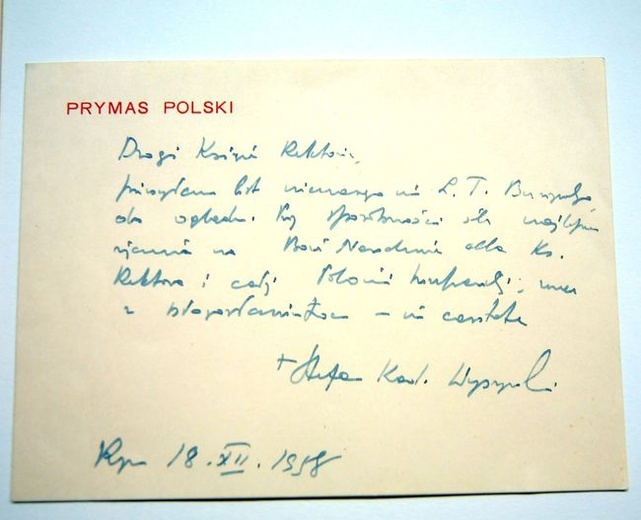 PRYMAS POLSKI
Drogi Księże Rektorze,
przesyłam list nieznanego mi L. T.
do wglądu. Przy sposobności ślę najlepsze
życzenia na Boże Narodzenie dla Ks.
Rektora i całej Polonii
z błogosławieństwem – in caritate
† Stefan Kard. Wyszyński
Rzym 18.XII.1958